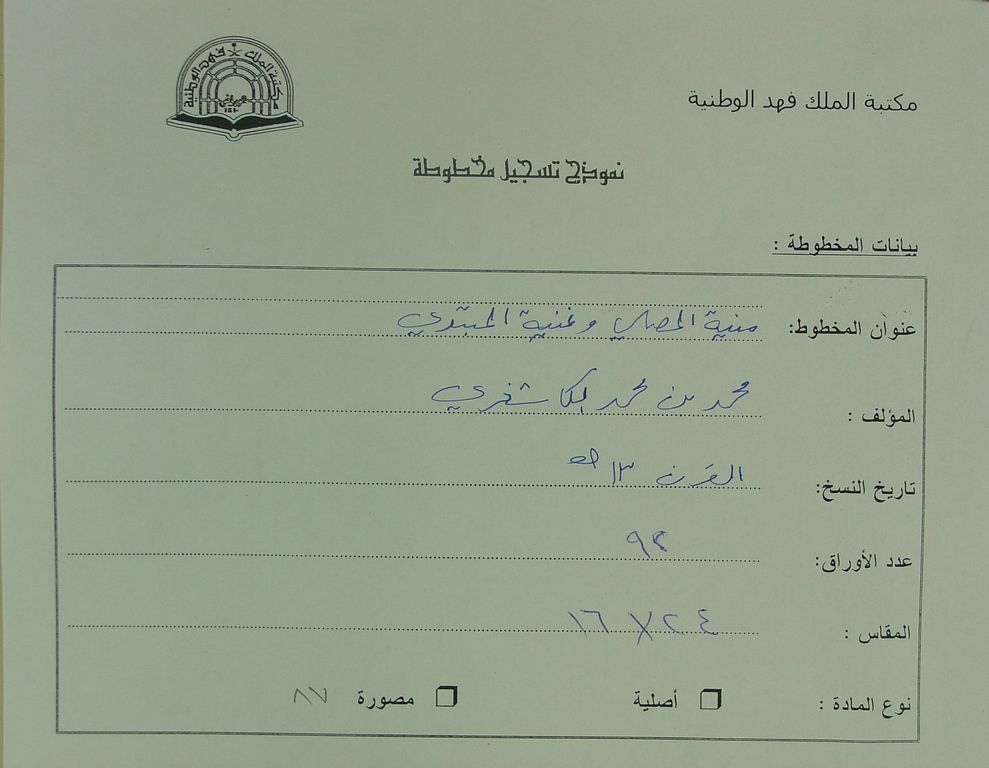 مكتبة الملك فهد الوطنية
مكتبة الملك فهد الوطنية
نموذج تسجيل مخطوطة
بيانات المخطوطة :
عنوان المخطوط: منية المصلي و غنية المبتدي
المؤلف : محمد بن محمد الكاشغري
تاريخ النسخ: القرن ١٣ هـ
عدد الأوراق: ٩٢
المقاس : ٢٤ X ١٦
نوع المادة : أصلية مصورة ٨٧